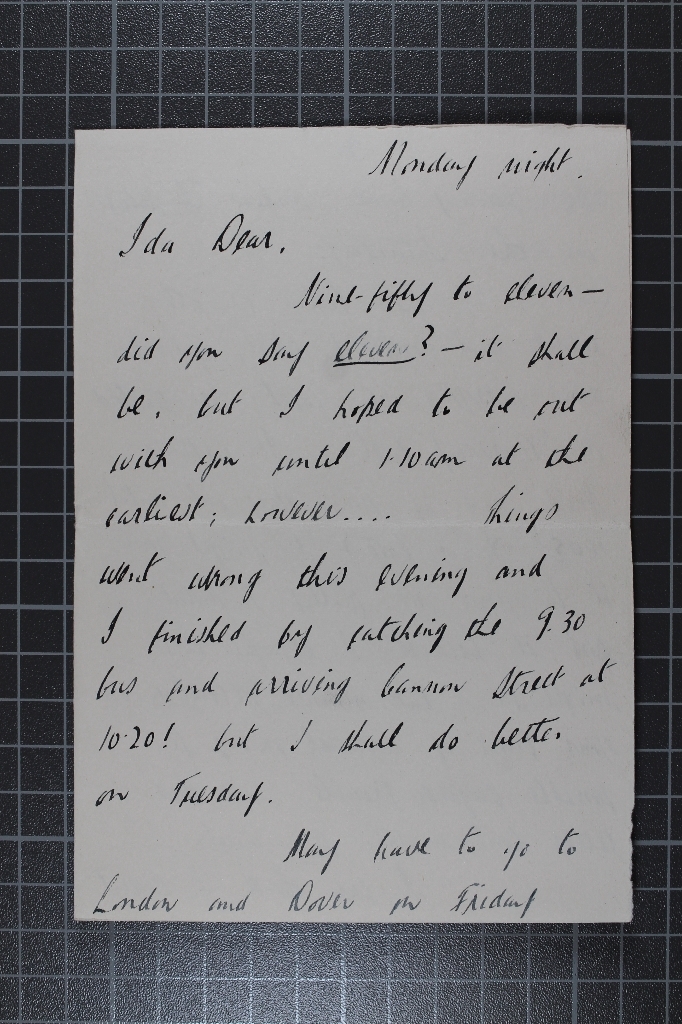 Monday night.
Ida Dear,
Nine-fifty to eleven —
did you say eleven? — it shall
be, but I hoped to be out
with you until 1.10 am at the
earliest; however.... things
went wrong this evening and
I finished by catching the 9.30
bus and arriving Cannon Street at
10.20! but I shall do better
on Tuesday.
May have to go to
London and Dover on Friday